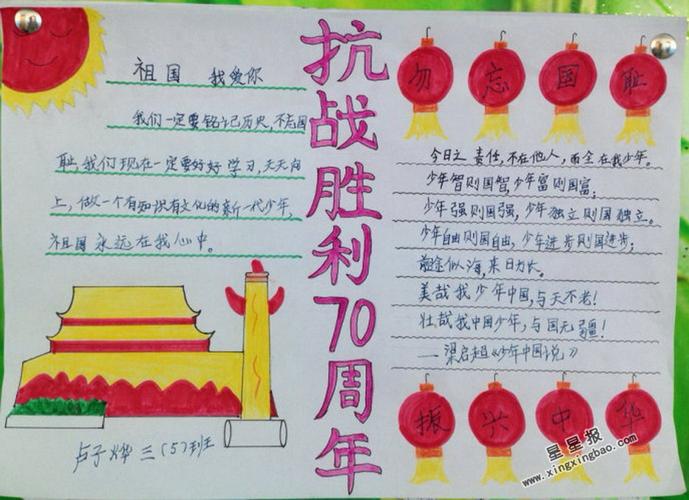 祖国 我爱你
我们一定要铭记历史，不忘国
耻，我们现在一定要好好学习，天天向
上，做一个有知识有文化的新一代少年，
祖国永远在我心中。
抗战胜利70周年
勿忘国耻
今日之责任，不在他人，而全在我少年。
少年智则国智，少年富则国富；
少年强则国强，少年独立则国独立。
少年自由则国自由，少年进步则国进步；
前途似海，来日方长。
美哉我少年中国，与天不老！
壮哉我中国少年，与国无疆！
——梁启超《少年中国说》
振兴中华
卢子烨 三（5）班
星星报
www.xingxingbao.com